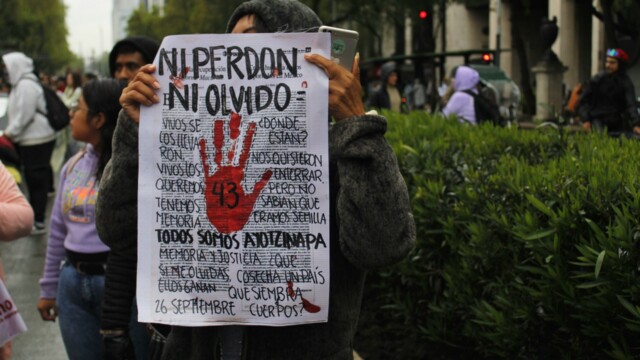 NI PERDON
NI OLVIDO
VIVOS SE ¿DONDE
LOS LLEVA ESTAN?
RON, NOS QUISIERON
VIVOS LOS ENTERRAR,
QUEREMOS PERO NO
TENEMOS 43 SABIAN QUE
MEMORIA ERAMOS SEMILLA
TODOS SOMOS AYOTZINAPA
MEMORIA Y JUSTICIA ¿QUE
SI ME OLVIDAS, COSECHA UN PAÍS
ELLOS GANAN QUE SIEMBRA
26 SEPTIEMBRE CUERPOS?